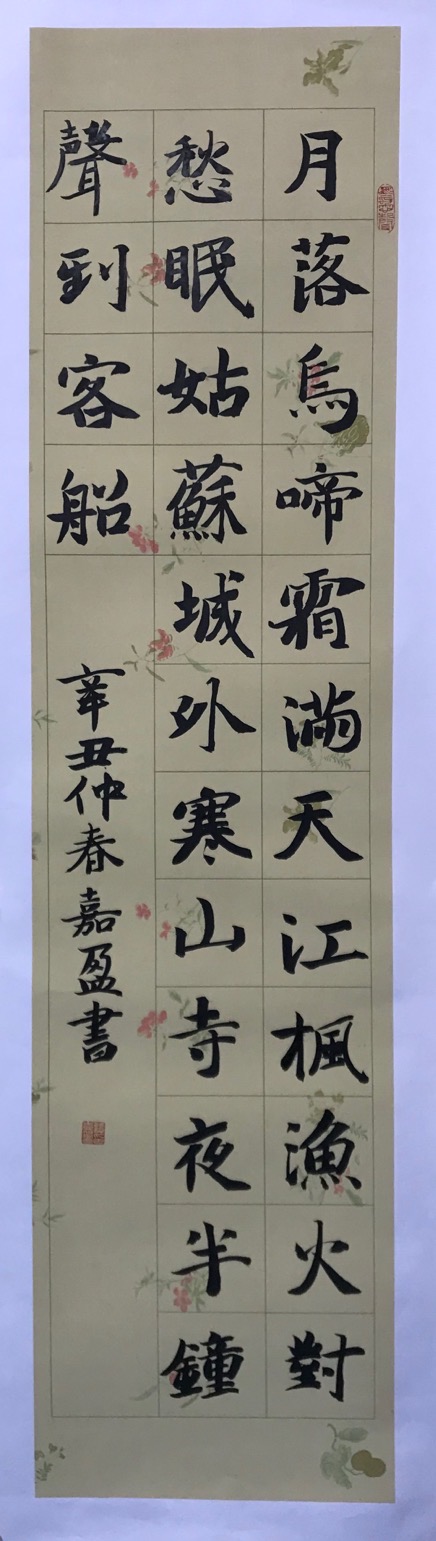 月落烏啼霜滿天江楓漁火對
愁眠姑蘇城外寒山寺夜半鐘
聲到客船
辛丑仲春嘉盈書